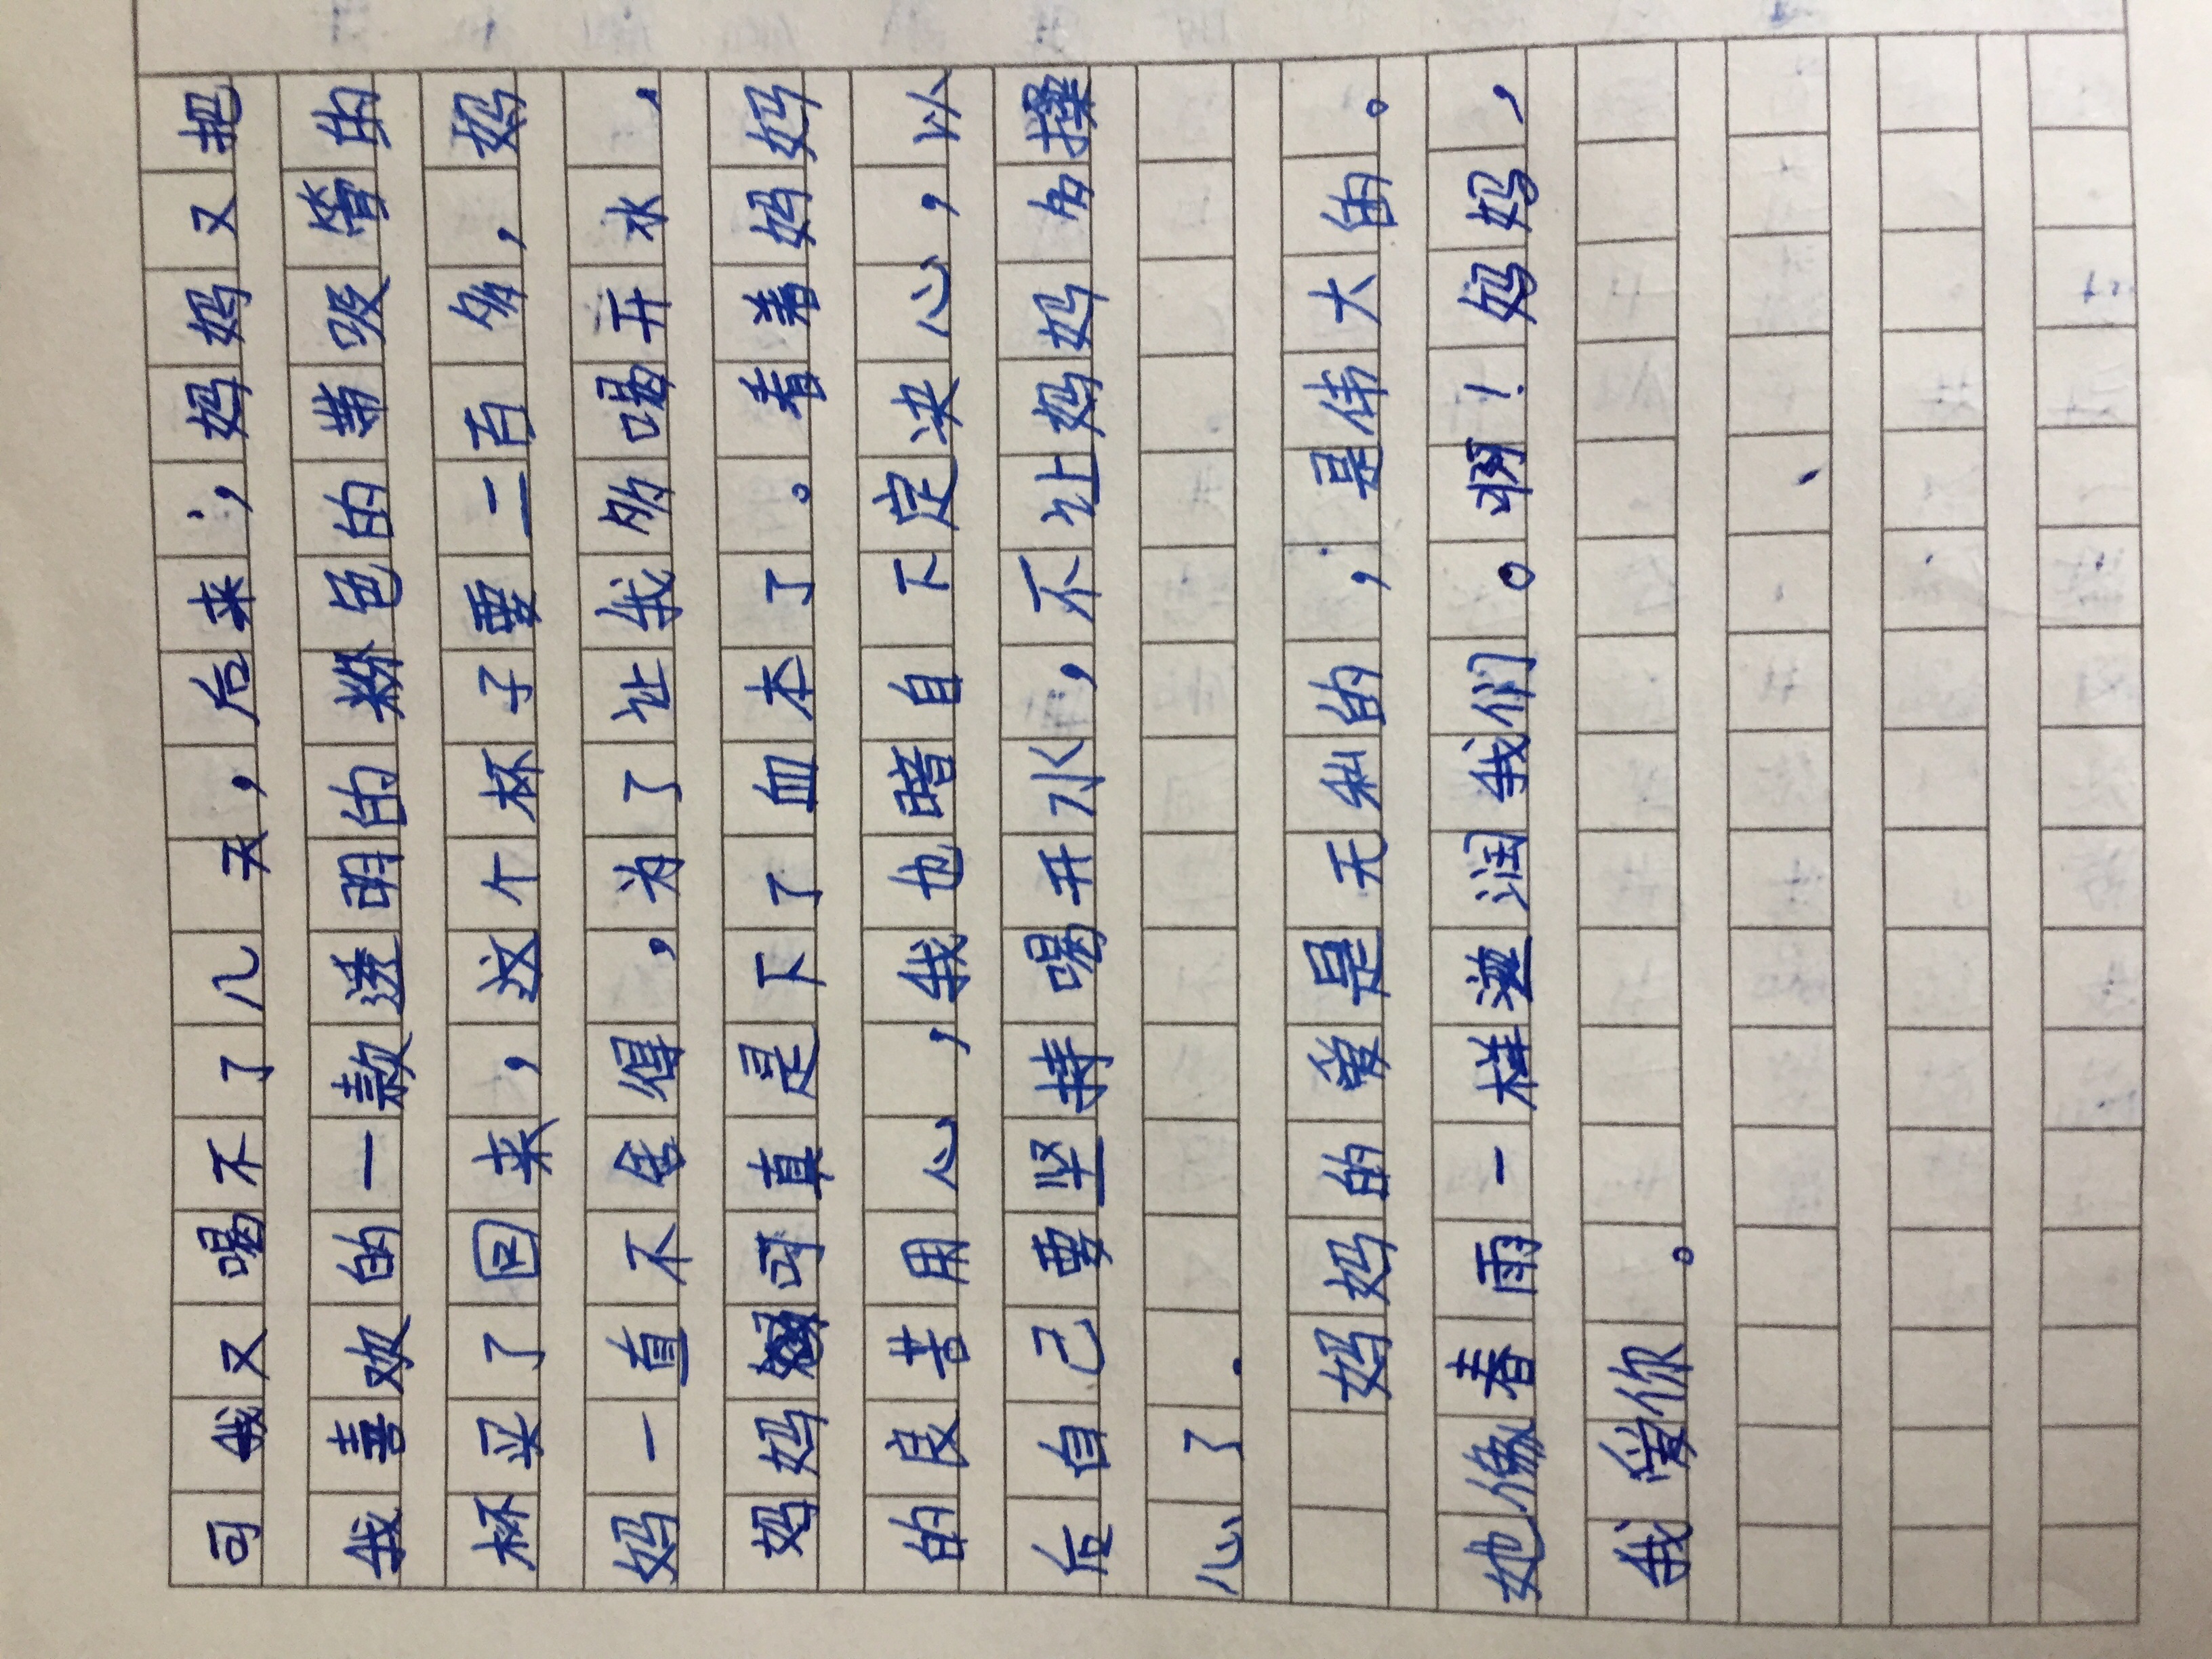 可我又喝不了几天，后来，妈妈又把
我喜欢的一款透明的粉色的带吸管的
杯买了回来，这个杯子要二百多，妈
妈一直不舍得，为了让我多喝开水，
妈妈可真是下了血本了。看着妈妈
的良苦用心，我也暗自下定决心，以
后自己要坚持喝开水，不让妈妈多操
心了.
妈妈的爱是无私的，是伟大的。
她像春雨一样滋润我们。啊！妈妈，
我爱你。